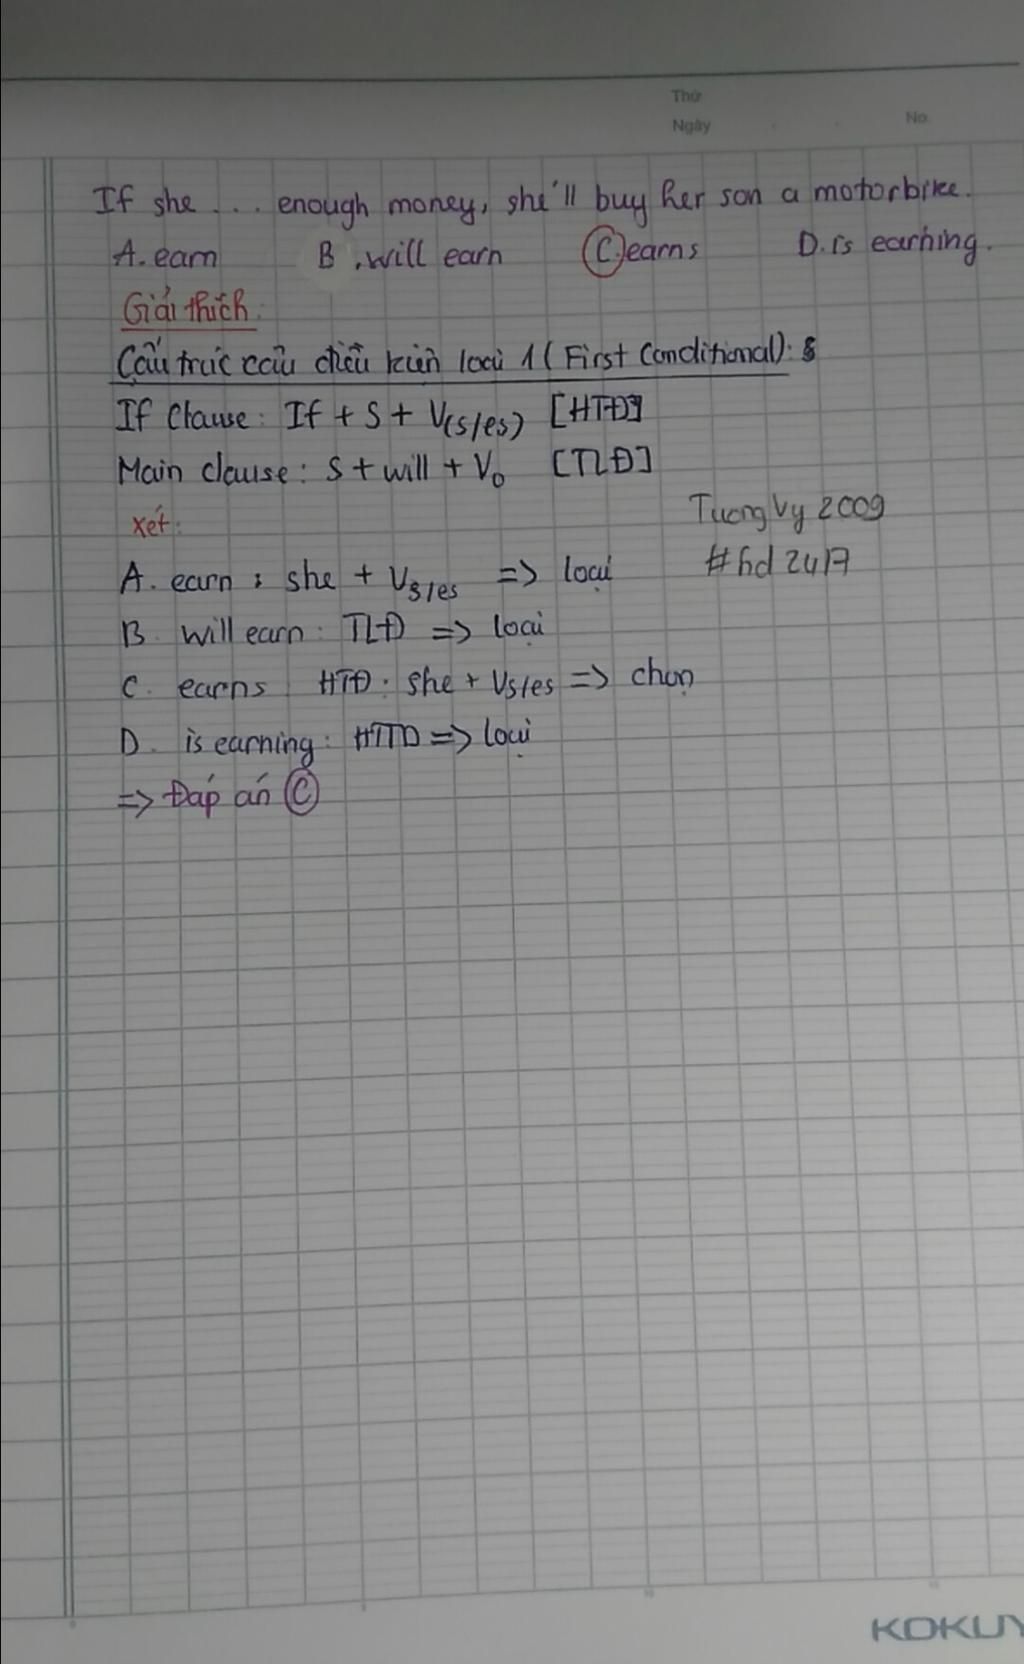 Thứ
Ngày
No.
If she ... enough money, she'll buy her son a motorbike.
A. earn B. will earn C. earns D. is earning.
Giải thích:
Cấu trúc câu điều kiện loại 1 (First Conditional):
If Clause: If + S + V(s/es) [HTĐ]
Main clause: S + will + V₀ [TLĐ]
Xét:
Tuong Vy 2009
#hd 2417
A. earn : she + Vs/es => loại
B. will earn: TLĐ => loại
C. earns: HTĐ: she + Vs/es => chọn
D. is earning: HTTD => loại
=> Đáp án C
KOKUY